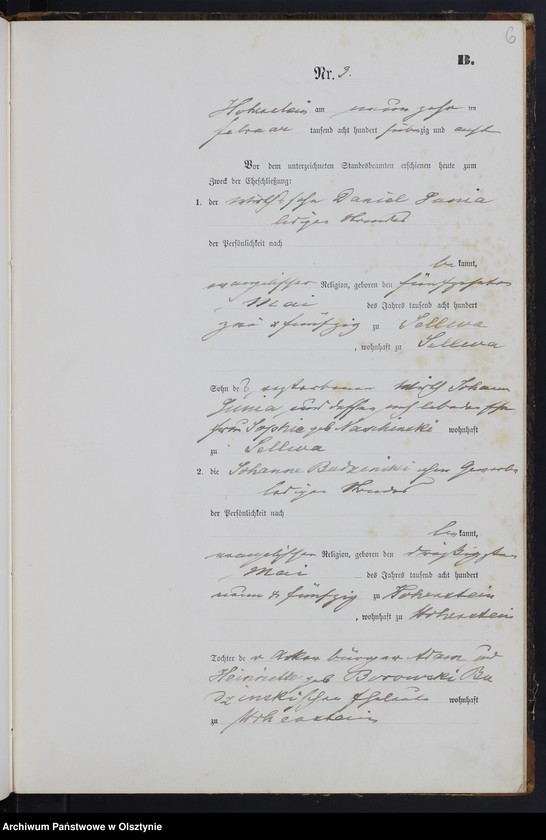 6
B.
Nr. 9.
Hohenstein am neunzehnten
Februar tausend acht hundert siebenzig und acht
Vor dem unterzeichneten Standesbeamten erschienen heute zum
Zweck der Eheschließung:
1. der Daniel
ledigen Standes
der Persönlichkeit nach
be kannt,
evangelischer Religion, geboren den fünfzehnten
Mai des Jahres tausend acht hundert
zwei & fünfzig zu Sellwa
, wohnhaft zu Sellwa
Sohn des verstorbenen Wirth Johann
und dessen noch lebenden
Frau Sophie geb Naschinski wohnhaft
zu Sellwa
2. die Johanne Budzinski ohne Gewerbe
ledigen Standes
der Persönlichkeit nach
be kannt,
evangelischer Religion, geboren den dreißigsten
Mai des Jahres tausend acht hundert
neun & fünfzig zu Hohenstein
, wohnhaft zu Hohenstein
Tochter der Ackerbürger Adam und
Heinriette geb Borowski Bu
dzinskischen Eheleute wohnhaft
zu Hohenstein
Archiwum Państwowe w Olsztynie